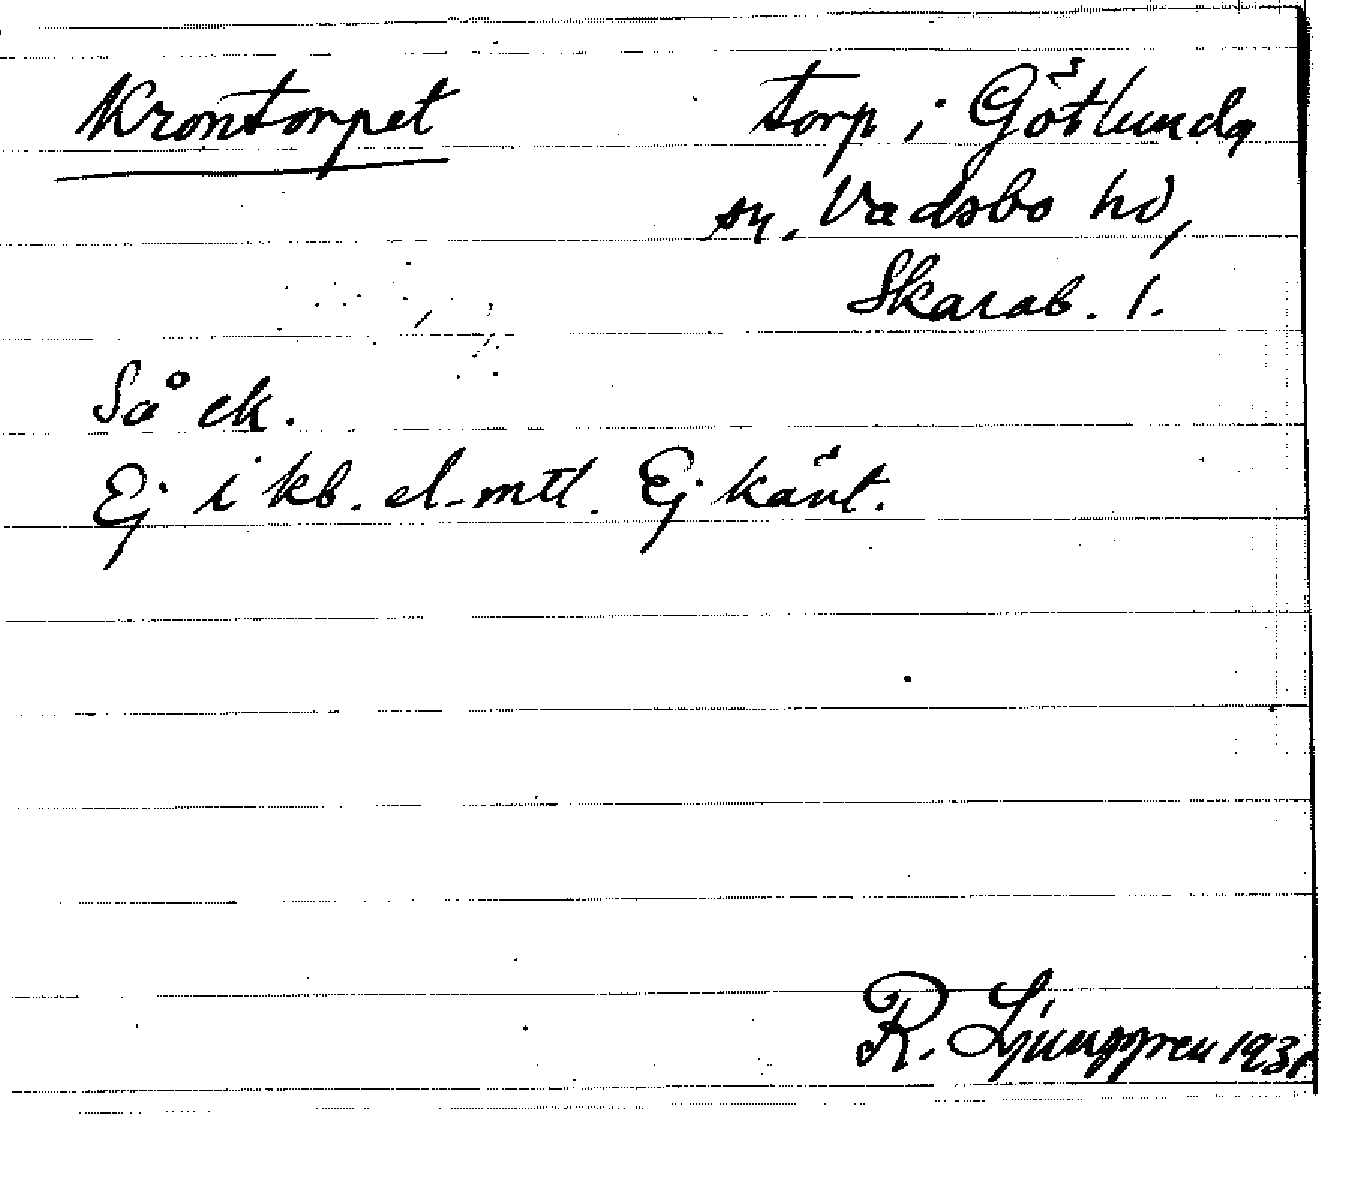 Krontorpet
torp i Götlunda
sn, Vadsbo hd,
Skarab. l.
Så ek.
Ej i kb. el. mtl. Ej känt.
R. Ljunggren 1931